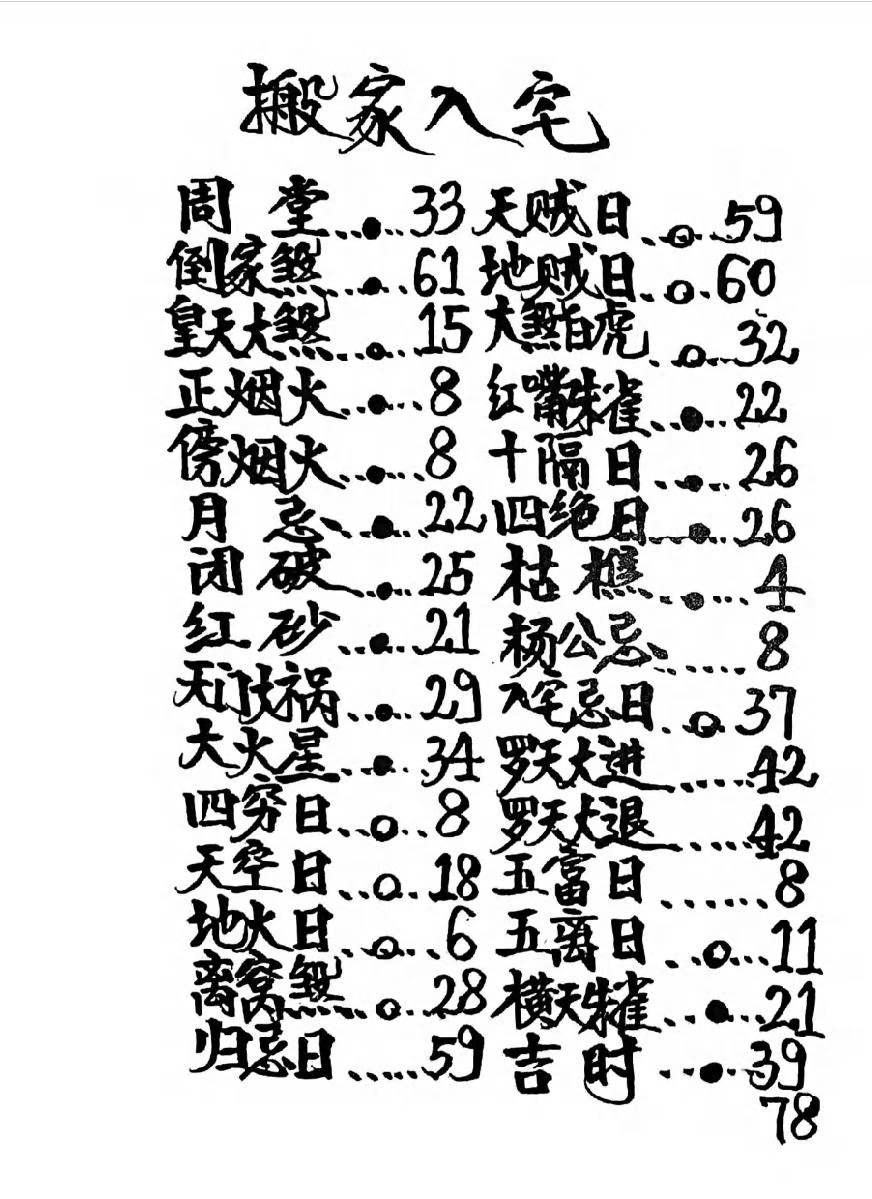 搬家入宅
周堂...●...33
倒家煞...●...61
皇天大煞...○...15
正烟火...●...8
傍烟火...●...8
月忌...●...22
闭破...●...25
红砂...●...21
天门伏祸...●...29
大火星...●...34
四穷日...○...8
天空日...○...18
地火日...○...6
离窝煞...○...28
归忌日......59
天贼日...○...59
地贼日...○...60
大煞白虎...○...32
红嘴朱雀...●...22
十隔日...●...26
四绝日...●...26
枯樵...●...4
杨公忌......8
入宅忌日...○...37
罗天大进......42
罗天大退......42
五富日......8
五离日...○...11
横天朱雀...●...21
吉时...●...39
78